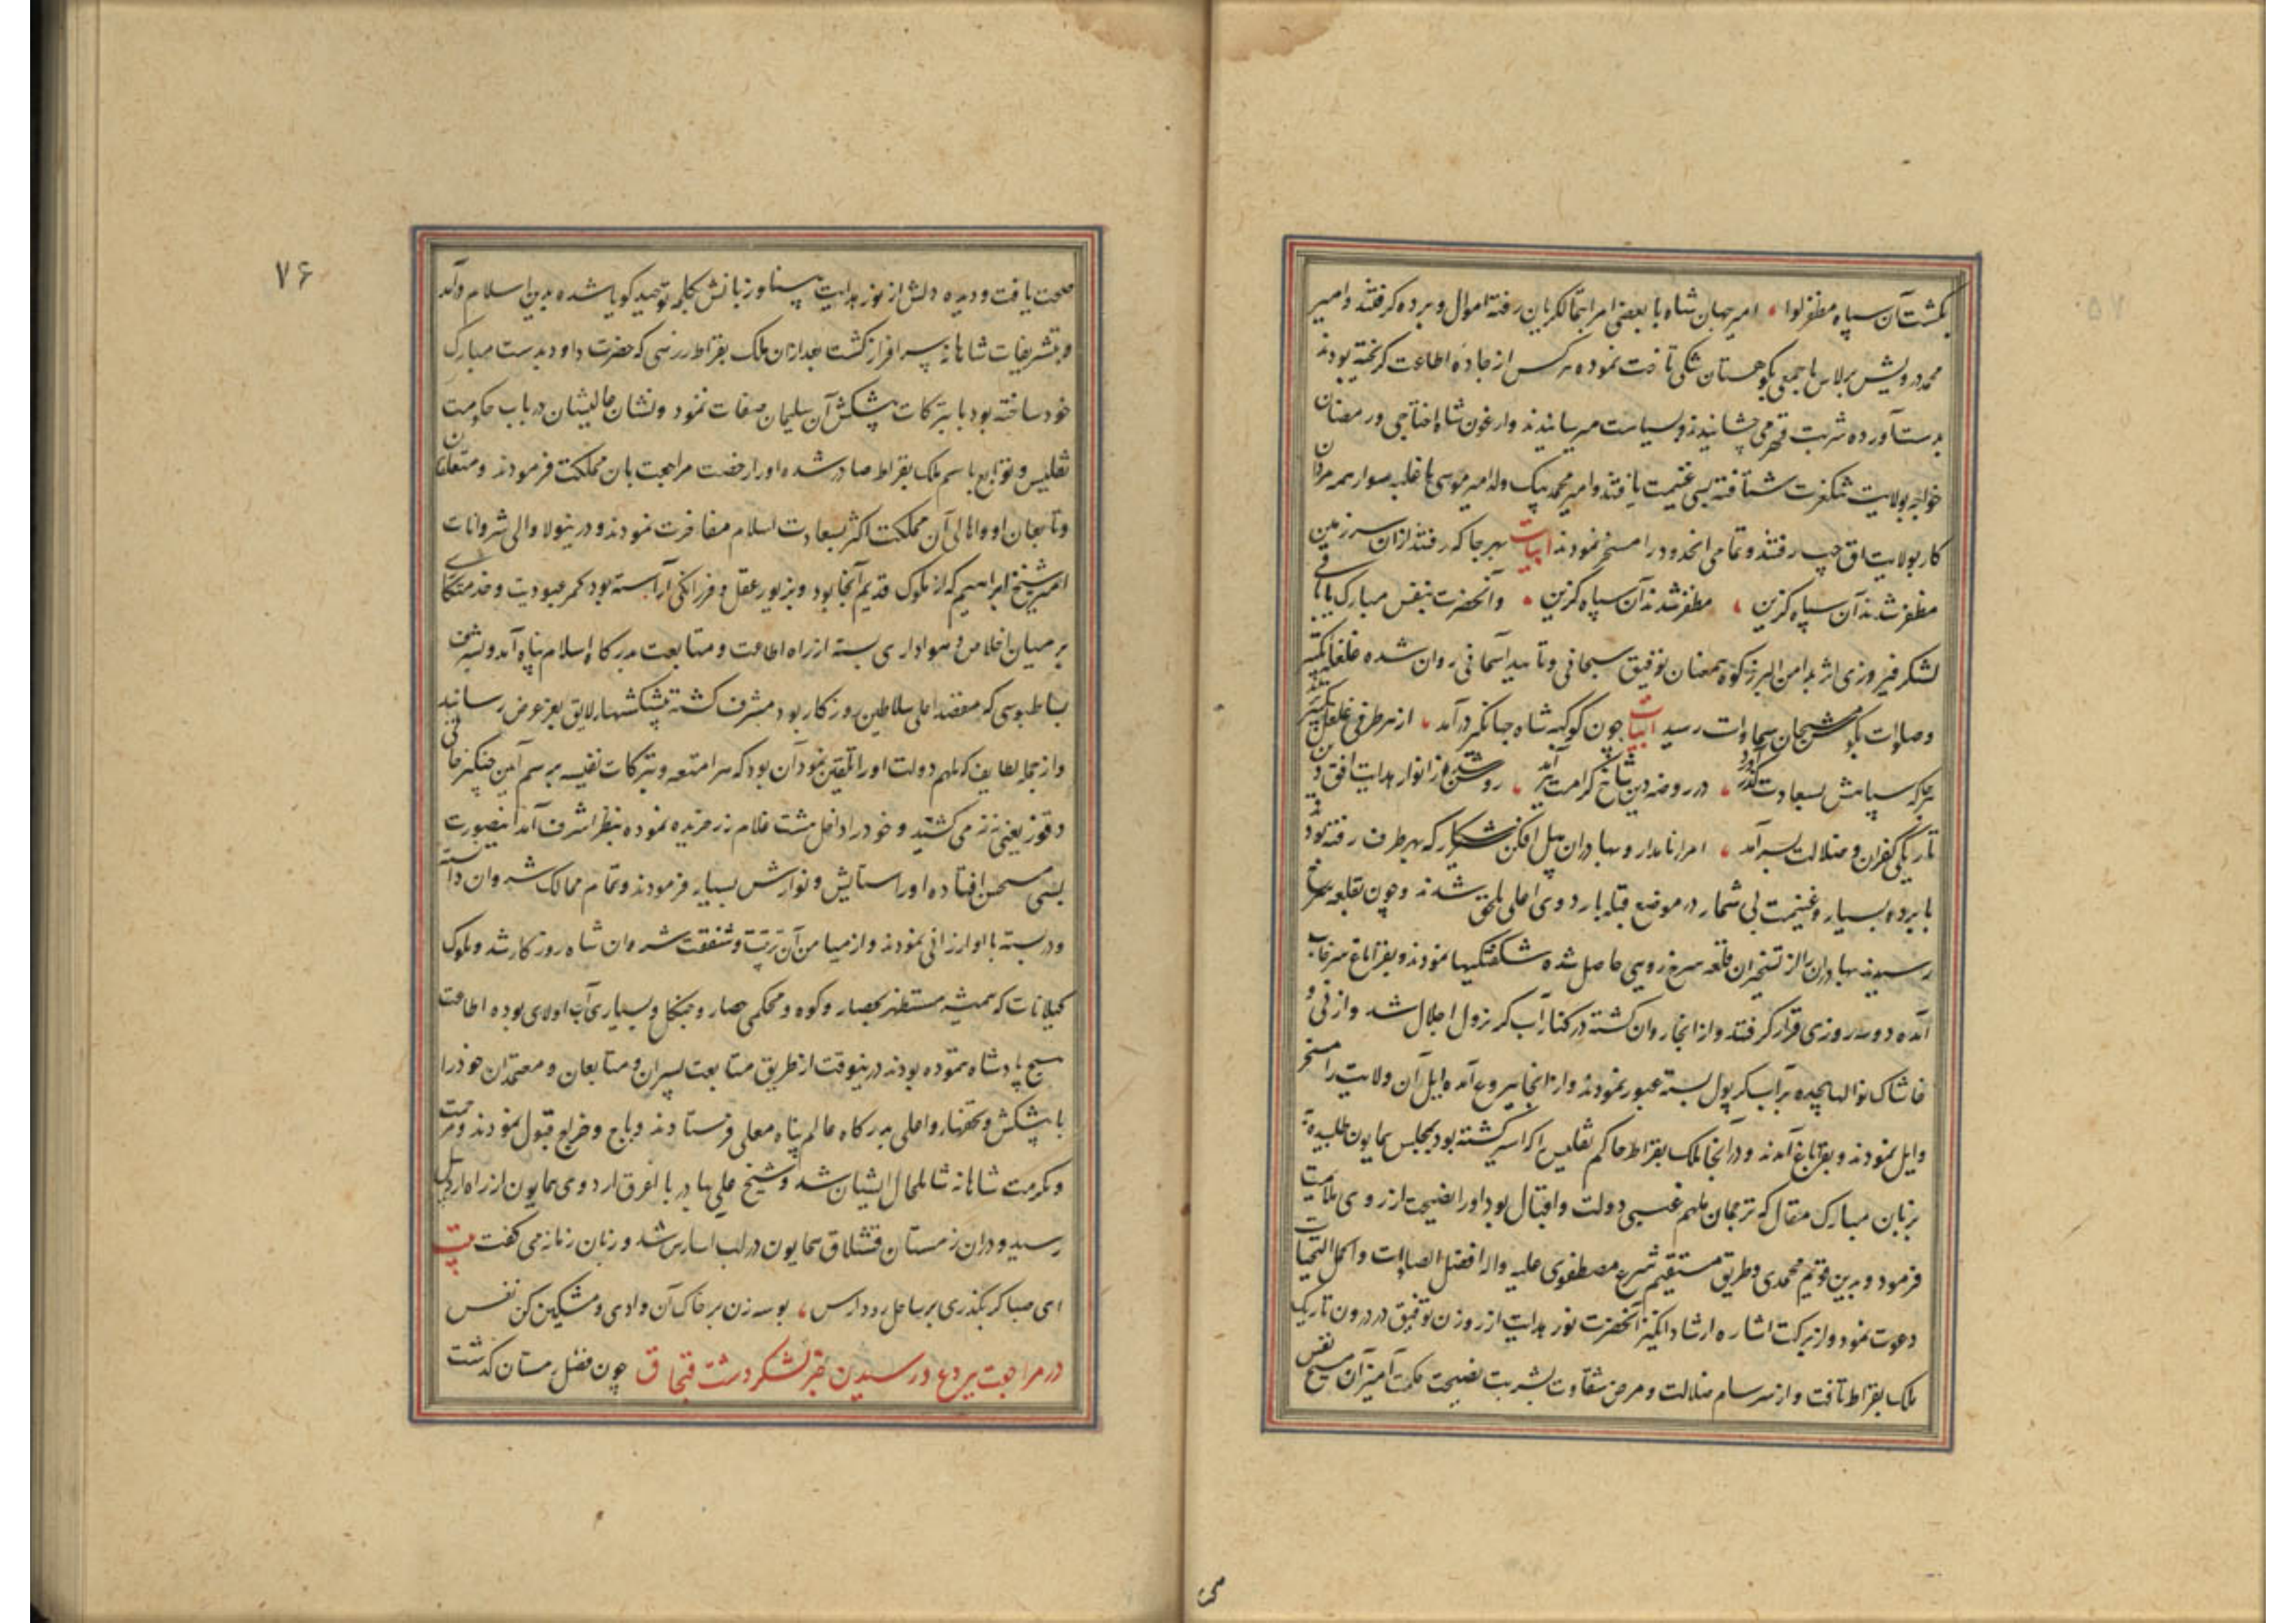 بکشت آن سپاه مظفر لوا امیر جهان شاه با بعضی امرا بتماکریان رفته اموال و برده گرفتند و امیر
محمد درویش برلاس با جمعی بکوهستان شکی تاخت نموده هر کس از جاده اطاعت گریخته بودند
بدست آورده شربت قهر می چشانیدند و بسیاست میرسانیدند و ارغون شاه اختاجی و رمضان
خواجه بولایت تنکغرت شتافته بسی غنیمت یافتند و امیر محمد بیک ولد امیر موسی با غلبه سوار همه مردان
کار بولایت اق جب رفتند و تمامی انحدود را مسخر نمودند ابیات بهر جا که رفتند ازان سرزمین
مظفر شدند آن سپاه گزین مظفر شدند آن سپاه گزین و آنحضرت بنفس مبارک با باقی
لشکر فیروزی اثر بدامن البرز کوه همعنان توفیق سبحانی و تایید آسمانی روان شده غلغله تکبیر
و صلوات بگوش مسبحان سماوات رسید ابیات چون کوکبه شاه جهانگیر درآمد از هر طرفی غلغل تکبیر برآمد
هر جا که سپاهش بسعادت گذر آورد در روضه دین شاخ کرامت ببر آمد روشن شد از انوار هدایت افق دین
تاریکی کفران و ضلالت بسر آمد امراء نامدار و بهادران پیل افکن شیر شکار که بهر طرف رفته بودند
با برده بسیار و غنیمت بی شمار در موضع قبله باردوی اعلی ملحق شدند و چون بقلعه سرخ
رسیدند بهادران را از تسخیران قلعه سرخ رویی حاصل شده شگفتگیها نمودند و بقراباغ سرخاب
آمده دو سه روزی قرار گرفتند و از انجا روان گشته در کنار آب کر نزول اجلال شد و از نی و
خاشاک نوالها پیچیده بر آب کر پول بسته عبور نمودند و از انجا ببردع آمده ایل آن ولایت را مسخر
و ایل نمودند و بقراباغ آمدند و در آنجا ملک بقراط حاکم تفلیس را که اسیر گشته بود بمجلس همایون طلبیده
بزبان مبارک مقال که ترجمان ملهم غیبی دولت و اقبال بود او را نصیحت از روی ملامت
فرمود و بدین قویم محمدی و طریق مستقیم شرع مصطفوی علیه و اله افضل الصلوات و اکمل التحیات
دعوت نمود و از برکت اشاره ارشاد انگیز آنحضرت نور هدایت از روزن توفیق در درون تاریک
ملک بقراط تافت و از سرسام ضلالت و مرض شقاوت بشربت نصیحت حکمت آمیز آن مسیح نفس
۷۶
صحت یافت و دیده دلش از نور هدایت بینا و زبانش بکلمه توحید گویا شده بدین اسلام درآمد
و بتشریفات شاهانه سرافراز گشت بعد ازان ملک بقراط زرهی که حضرت داود بدست مبارک
خود ساخته بود با تبرکات پیشکش آن سلیمان صفات نمود و نشان عالیشان در باب حکومت
تفلیس و توابع باسم ملک بقراط صادر شده او را رخصت مراجعت بان مملکت فرمودند و متعلقان
و تابعان او و اهالی آن مملکت اکثر بسعادت اسلام مفاخرت نمودند و درینولا والی شروانات
امیر شیخ ابراهیم که از ملوک قدیم آنجا بود و بزیور عقل و فرزانگی آراسته بود کمر عبودیت و خدمتکاری
بر میان اخلاص و هواداری بسته از راه اطاعت و متابعت بدرگاه اسلام پناه آمد و بشرف
بساطبوسی که مقصد اعلی سلاطین روزگار بود مشرف گشته پیشکشهاء لایق بعز عرض رسانید
و از جمله لطایف که ملهم دولت او را تلقین نمود آن بود که هر امتعه و تبرکات نفیسه برسم آیین چنگیزخانی
دقوز یعنی نه نه می کشید و خود را داخل هشت غلام زر خریده نموده بنظر اشرف آمد اینصورت
بسی مستحسن افتاده او را ستایش و نوازش بسیار فرمودند و تمام ممالک شروان داسته
و دربسته باو ارزانی نمودند و از میامن آن تربیت و شفقت شروان شاه روزگار شد و ملوک
گیلانات که همیشه مستظهر بحصار و کوه و محکمی حصار و جنگل و بسیاری آب و لای بوده اطاعت
هیچ پادشاه ننموده بودند درینوقت از طریق متابعت پسران و متابعان و معتمدان خود را
با پیشکش و تحفهاء وافی بدرگاه عالم پناه معلی فرستادند و باج و خراج قبول نمودند و مرحمت
و مکرمت شاهانه شامل حال ایشان شد و شیخ علی بهادر با اغرق اردوی همایون از راه اردبیل
رسید و دران زمستان قشلاق همایون در لب اب ارس شد و زبان زمانه می گفت بیت
ای صبا گر بگذری بر ساحل رود ارس بوسه زن بر خاک آن وادی و مشکین کن نفس
در مراجعت ببردع و رسیدن خبر لشکر دشت قبچاق چون فصل زمستان گذشت